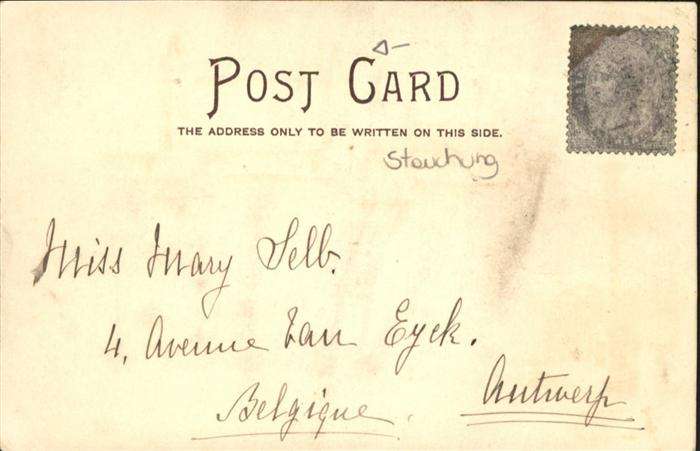 POST CARD
THE ADDRESS ONLY TO BE WRITTEN ON THIS SIDE.
Stauchung
Miss Mary Selb.
4, Avenue Van Eyck.
Antwerp
Belgique.